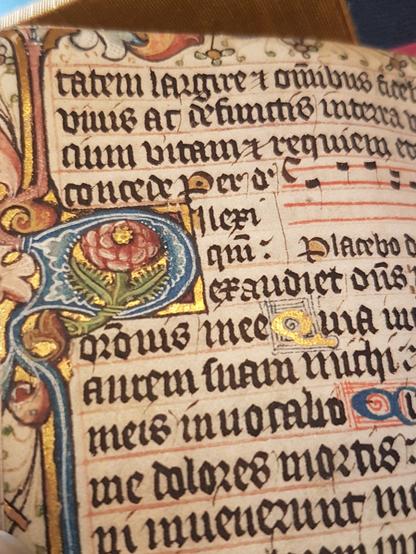 tatem largire ⁊ om̄ibus fidel
viuis ac defunctis in terra
cium vitam ⁊ requiem et
concede Per
Dilexi
qm̄ : Placebo d
exaudiet dn̄s
or̄onis mee Quia in
aurem suam michi :
meis inuocabo
me dolores mortis
ni inuenerunt me